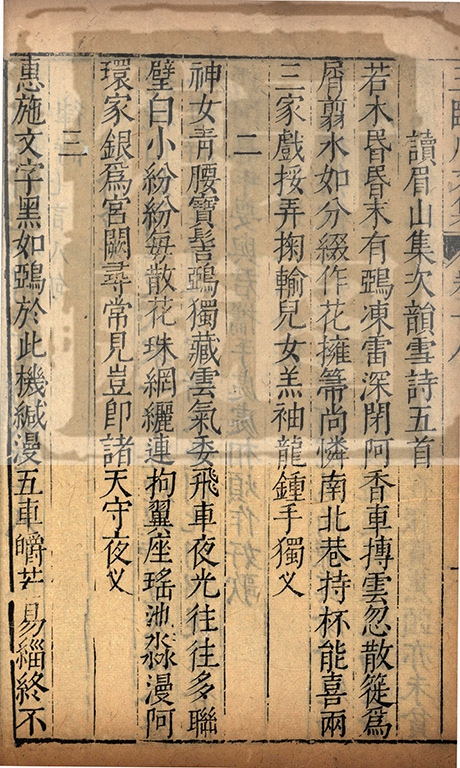 讀眉山集次韻雪詩五首
若木昏昏末有鵶凍雷深閉阿香車摶雲忽散簁爲
屑翦水如分綴作花擁箒尚憐南北巷持杯能喜兩
三家戲挼弄掬輸兒女羔袖龍鍾手獨叉
二
神女青腰寳髻鵶獨藏雲氣委飛車夜光往往多聯
璧白小紛紛每散花珠網纚連拘翼座瑤池淼漫阿
環家銀爲宮闕尋常見豈即諸天守夜叉
三
惠施文字黑如鵶於此機緘漫五車皭若易緇終不